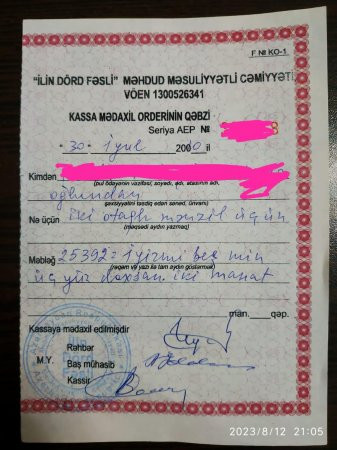 F № KO-1
"İLİN DÖRD FƏSLİ" MƏHDUD MƏSULİYYƏTLİ CƏMİYYƏTİ
VÖEN 1300526341
KASSA MƏDAXİL ORDERİNİN QƏBZİ
Seriya AEP №
"30" iyul 2010 il
Kimdən
(pul ödəyənin vəzifəsi, soyadı, adı, atasının adı,
oğlundan
şəxsiyyətini təsdiq edən sənəd, ünvanı)
Nə üçün iki otaqlı mənzil üçün
(məqsədi aydın yazmaq)
Məbləğ 25392= iyirmi beş min
(rəqəm və yazı ilə tam aydın göstərməli)
üç yüz doxsan iki manat
man. qəp.
Kassaya mədaxil edilmişdir
Rəhbər
M.Y. Baş mühasib
Kassir
2023/8/12 21:05